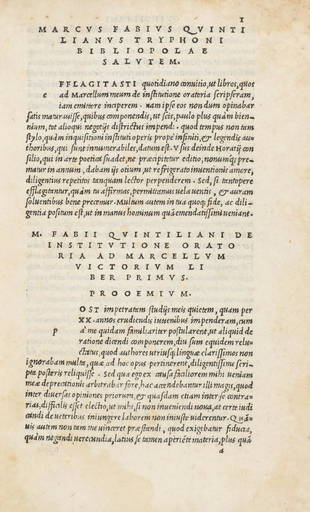 1
MARCVS FABIVS QVINTI
LIANVS TRYPHONI
BIBLIOPOLAE
SALVTEM.
e FFLAGITASTI quotidiano conuitio, ut libros, quos
ad Marcellum meum de institutione oratoria scripseram,
iam emittere inciperem. nam ipse eos nondum opinabar
satis maturuisse, quibus componendis, ut scis, paulo plus quàm bien-
nium, tot alioqui negotijs districtus impendi. quod tempus non tam
stylo, quàm inquisitioni instituti operis propè infiniti, & legendis au-
thoribus, qui sunt innumerabiles, datum est. Vsus deinde Horatij con-
silio, qui in arte poetica suadet, ne præcipitetur editio, nonumq; pre-
matur in annum, dabam ijs otium, ut refrigerato inuentionis amore,
diligentius repetitos tanquam lector perpenderem. Sed, si tantopere
efflagitantur, quàm tu affirmas, permittamus uela uentis, & oram
soluentibus bene precemur. Multum autem in tua quoq; fide, ac dili-
gentia positum est, ut in manus hominum quàm emendatissimi ueniant.
M. FABII QVINTILIANI DE
INSTITVTIONE ORATO
RIA AD MARCELLVM
VICTORIVM LI
BER PRIMVS.
PROOEMIVM.
p OST impetratam studijs meis quietem, quam per
XX. annos erudiendis iuuenibus impenderam, cum
à me quidam familiariter postularent, ut aliquid de
ratione dicendi componerem, diu sum equidem relu-
ctatus, quod auctores utriusq; linguæ clarissimos non
ignorabam multa, quæ ad hoc opus pertinerent, diligentissime scri-
pta posteris reliquisse. Sed qua ego ex causa faciliorem mihi ueniam
meæ deprecationis arbitrabar fore, hac accendebantur illi magis, quod
inter diuersas opiniones priorum, & quasdam etiam inter se contra-
rias, difficilis esset electio, ut mihi si non inueniendi noua, at certe iudi
candi de ueteribus iniungere laborem non iniuste uiderentur. Quàm
uis autem non tam me uinceret præstandi, quod exigebatur fiducia,
quàm negandi uerecundia, latius se tamen aperiẽte materia, plus quàm
a